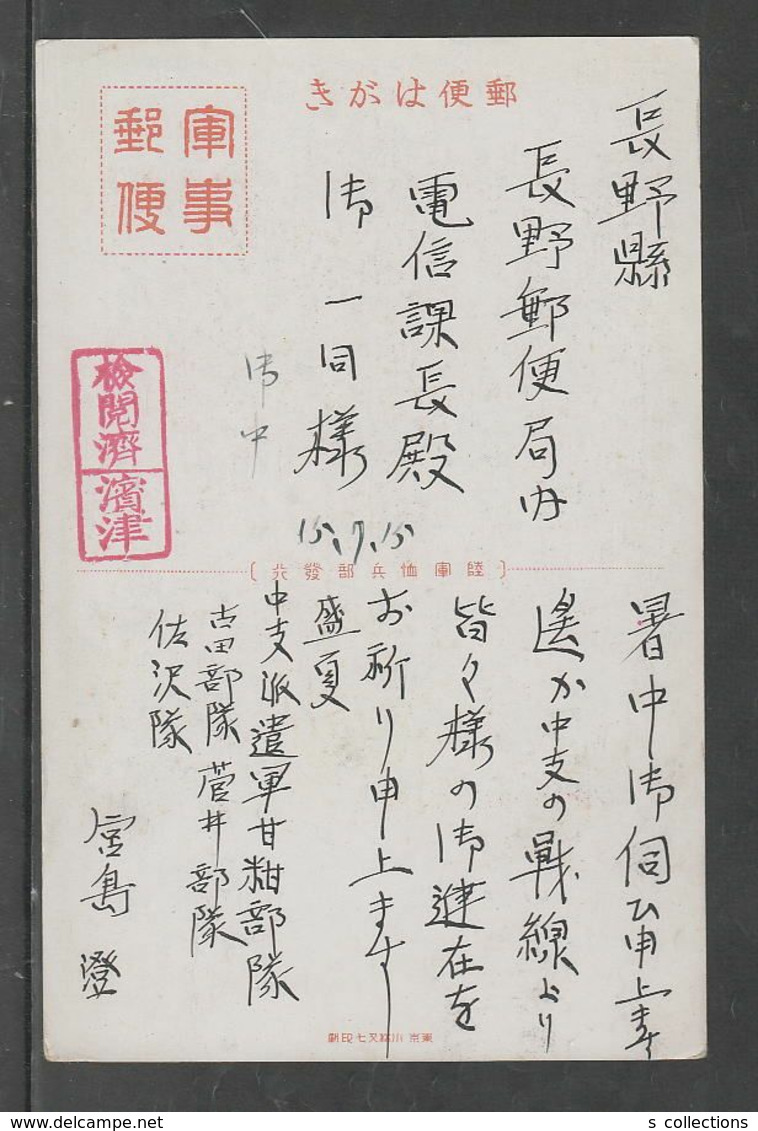 郵便はがき
軍事
郵便
長野縣
長野郵便局内
電信課長殿
御一同様
御中
15.7.15
検閲済
濱津
陸軍恤兵部發行
暑中御伺ひ申上ます
遙か中支の戦線より
皆々様の御健在を
お祈り申上ます
盛夏
中支派遣軍甘粕部隊
古田部隊 菅井部隊
佐沢隊
宮島 澄
s collections